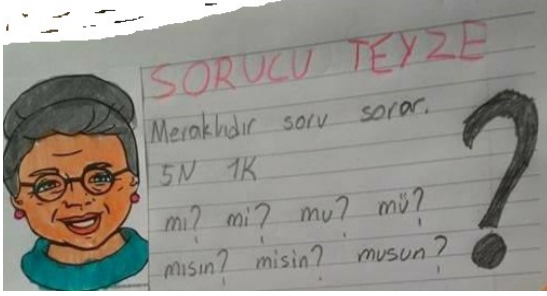 SORUCU TEYZE
Meraklıdır soru sorar.
5N 1K
mı? mi? mu? mü?
mısın? misin? musun?
?